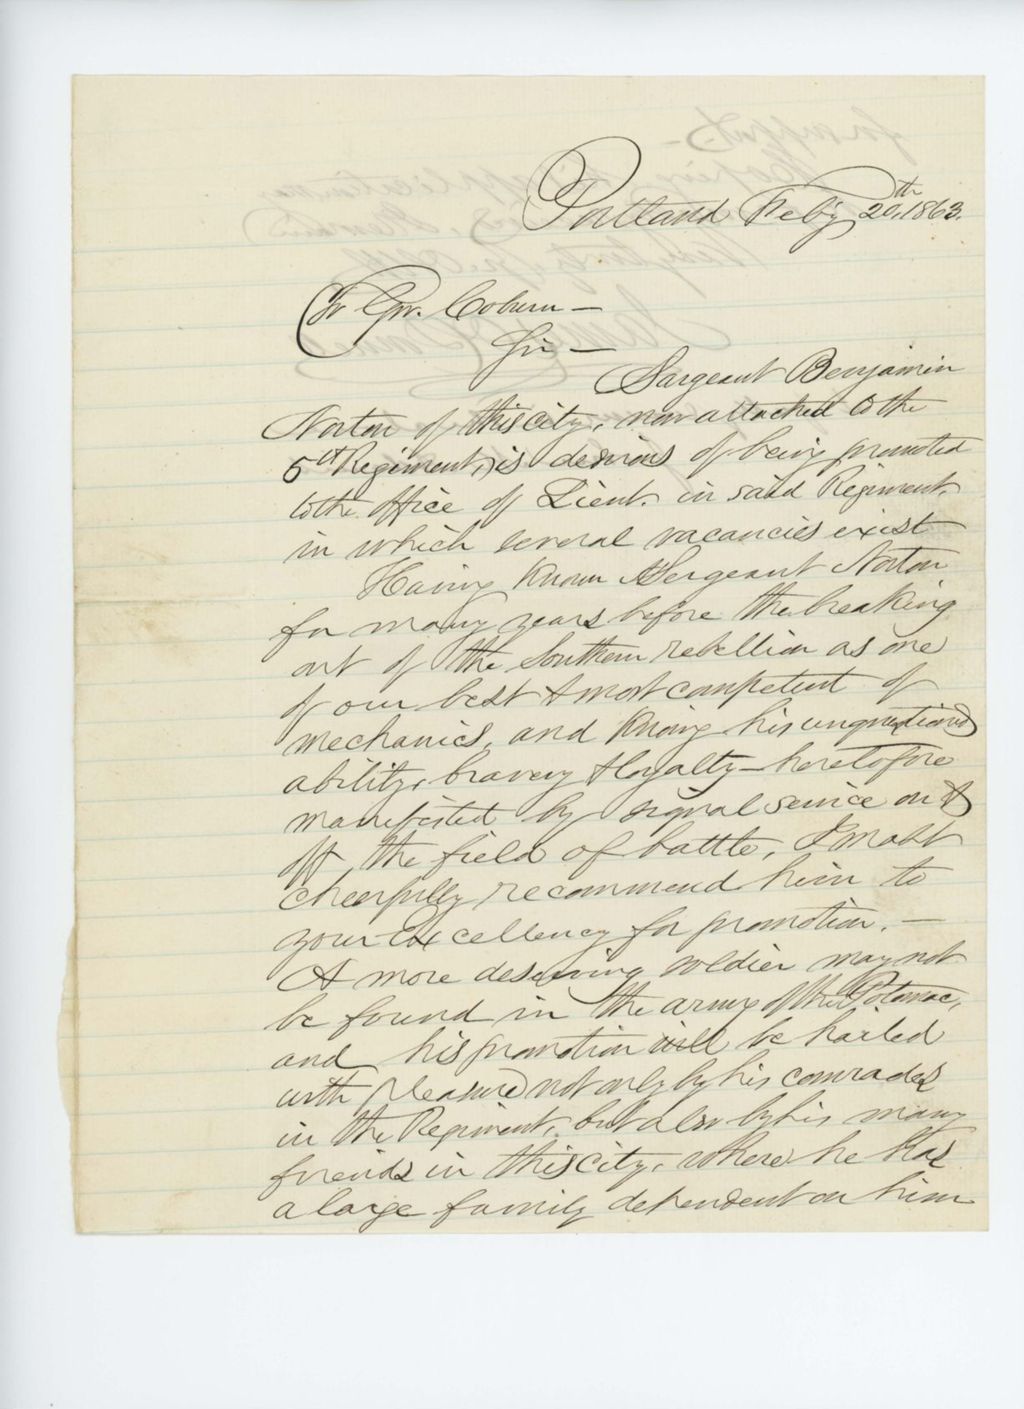 Portland Feb'y 20th, 1863.
To Gov. Coburn —
Sir —
Sargeant Benjamin
Norton of this city, now attached to the
5th Regiment, is desirous of being promoted
to the office of Lieut. in said Regiment,
in which several vacancies exist
Having known Sergeant Norton
for many years before the breaking
out of the Southern rebellion as one
of our best & most competent of
mechanics, and knowing his unquestioned
ability, bravery & loyalty — heretofore
manifested by signal service on &
off the field of battle, I most
cheerfully recommend him to
your Excellency for promotion. —
A more deserving soldier may not
be found in the army of the Potomac,
and his promotion will be hailed
with pleasure not only by his comrades
in the Regiment, but also by his many
friends in this city, where he has
a large family dependent on him